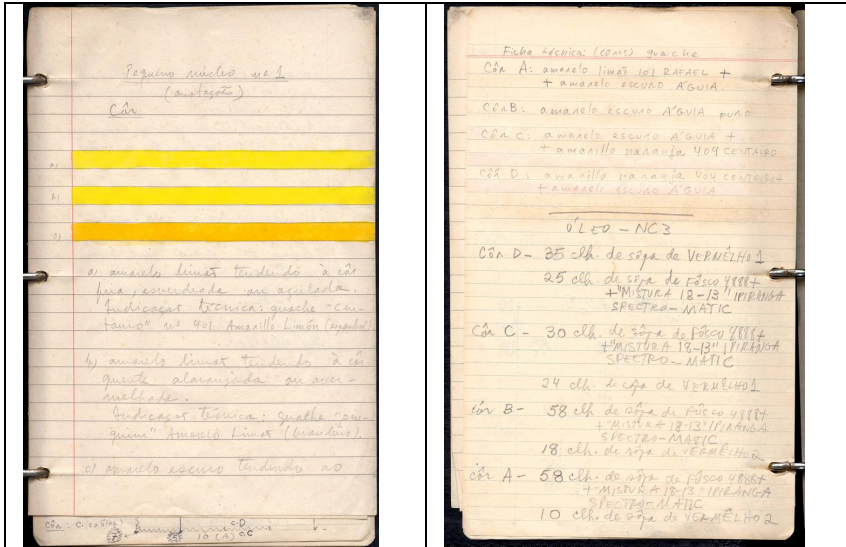 Pequeno núcleo nº 1
(anotações)
Côr
a)
b)
c)
a) amarelo limão tendendo à côr
fria, esverdeada ou azulada.
Indicação técnica: guache "cen-
tauro" nº 401 Amarillo Limón (espanhol).
b) amarelo limão tendendo à côr
quente alaranjada ou aver-
melhada.
Indicação técnica: guache
Amarelo Limão (brasileiro).
c) amarelo escuro tendendo ao
Côr:
10 (A)
C-D
Ficha técnica: (cores) guache
Côr A: amarelo limão 101 RAFAEL +
+ amarelo escuro ÁGUIA.
Côr B: amarelo escuro ÁGUIA puro
Côr C: amarelo escuro ÁGUIA +
+ amarillo naranja 404 CENTAURO
Côr D: amarillo naranja 404 CENTAURO +
+ amarelo escuro ÁGUIA
ÓLEO - NC3
Côr D - 35 clh. de sôpa de VERMÊLHO 1
25 clh. de sôpa de FÔSCO 4888+
+"MISTURA 18-13" IPIRANGA
SPECTRO-MATIC
Côr C - 30 clh. de sôpa de FÔSCO 4888+
+"MISTURA 18-13" IPIRANGA
SPECTRO-MATIC
24 clh. de sopa de VERMÊLHO 1
côr B- 58 clh. de sôpa de FÔSCO 4888+
+"MISTURA 18-13" IPIRANGA
SPECTRO-MATIC
18 clh. de sopa de VERMÊLHO 2
côr A- 58 clh. de sôpa de FÔSCO 4888+
+"MISTURA 18-13" IPIRANGA
SPECTRO-MATIC
10 clh. de sôpa de VERMÊLHO 2